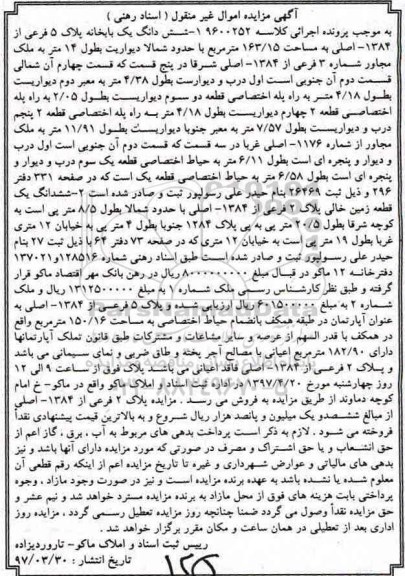 آگهی مزایده اموال غیر منقول ( اسناد رهنی )
به موجب پرونده اجرائی کلاسه ۹۶۰۰۲۵۲ ۱-شش دانگ یک بابخانه پلاک ۵ فرعی از
۱۳۸۴- اصلی به مساحت ۱۶۳/۱۵ مترمربع با حدود شمالا دیواریت بطول ۱۴ متر به ملک
مجاور شماره ۳ فرعی از ۱۳۸۴- اصلی شرقا در پنج قسمت که قسمت چهارم آن شمالی
قسمت دوم آن جنوبی است اول درب و دیواریست بطول ۴/۳۸ متر به معبر دوم دیواریست
بطول ۴/۱۸ متر به راه پله اختصاصی قطعه دو سوم دیواریست بطول ۲/۰۵ به راه پله
اختصاصی قطعه ۲ چهارم دیواریست بطول ۴/۱۸ متر به راه پله اختصاصی قطعه ۲ پنجم
درب و دیواریست بطول ۷/۵۷ متر به معبر جنوبا دیواریست بطول ۱۱/۹۱ متر به ملک
مجاور از شماره ۱۱۷۶- اصلی غربا در سه قسمت که قسمت دوم آن جنوبی است اول درب
و دیوار و پنجره ای است بطول ۶/۱۱ متر به حیاط اختصاصی قطعه یک سوم درب و دیوار و
پنجره ای است بطول ۶/۵۸ متر به حیاط اختصاصی قطعه یک است که در صفحه ۳۳۱ دفتر
۲۹۶ و ذیل ثبت ۲۶۴۶۹ بنام حیدر علی رسولپور ثبت و صادر شده است ۲-ششدانگ یک
قطعه زمین خالی پلاک ۲ فرعی از ۱۳۸۴- اصلی با حدود شمالا بطول ۸/۵ متر پی است به
کوچه شرقا بطول ۲۰/۵ متر پی به پی پلاک ۱۲۸۴ جنوبا بطول ۴ متر پی به خیابان ۱۲ متری
غربا بطول ۱۹ متر پی است به خیابان ۱۲ متری که در صفحه ۷۳ دفتر ۶۴ با ذیل ثبت ۲۷ بنام
حیدر علی رسولپور ثبت و صادر شده است طبق اسناد رهنی شماره ۱۲۸۵۱۶و۱۳۷۰۲۱
دفترخانه ۱۲ ماکو در قبال مبلغ ۸۰۰۰۰۰۰۰۰ ریال در رهن بانک مهر اقتصاد ماکو قرار
گرفته و طبق نظر کارشناس رسمی ملک شماره ۱ به مبلغ ۱۳۱۲۵۰۰۰۰۰ ریال و ملک
شماره ۲ به مبلغ ۶۰۱۵۰۰۰۰۰ ریال ارزیابی شده و پلاک ۵ فرعی از ۱۳۸۴- اصلی به
عنوان آپارتمان در طبقه همکف بانضمام حیاط اختصاصی به مساحت ۱۵۰/۱۶ مترمربع واقع
در همکف با قدر السهم از عرصه و سایر مشاعات و مشترکات طبق قانون تملک آپارتمانها
دارای ۱۸۲/۹۰ مترمربع اعیانی با مصالح آجر پخته و طاق ضربی و نمای سیمانی می باشد
و پلاک ۲ فرعی از ۱۳۸۴- اصلی فاقد اعیانی می باشد پلاک فوق از ساعت ۹ الی ۱۲
روز چهارشنبه مورخ ۱۳۹۷/۴/۲۰ در اداره ثبت اسناد و املاک ماکو واقع در ماکو- خ امام
کوچه دماوند از طریق مزایده به فروش می رسد . مزایده پلاک ۲ فرعی از ۱۳۸۴- اصلی
از مبالغ ششصدو یک میلیون و پانصد هزار ریال شروع و به بالاترین قیمت پیشنهادی نقداً
فروخته می شود . لازم به ذکر است پرداخت بدهی های مربوط به آب ، برق ، گاز اعم از
حق انشعاب و یا حق اشتراک و مصرف در صورتی که مورد مزایده دارای آنها باشد و نیز
بدهی های مالیاتی و عوارض شهرداری و غیره تا تاریخ مزایده اعم از اینکه رقم قطعی آن
معلوم شده یا نشده باشد به عهده برنده مزایده است و نیز در صورت وجود مازاد ، وجوه
پرداختی بابت هزینه های فوق از محل مازاد به برنده مزایده مسترد خواهد شد و نیم عشر و
حق مزایده نقداً وصول می گردد ضمنا چنانچه روز مزایده تعطیل رسمی گردد ، مزایده روز
اداری بعد از تعطیلی در همان ساعت و مکان مقرر برگزار خواهد شد .
رییس ثبت اسناد و املاک ماکو- تاروردیزاده
تاریخ انتشار : ۹۷/۰۳/۳۰